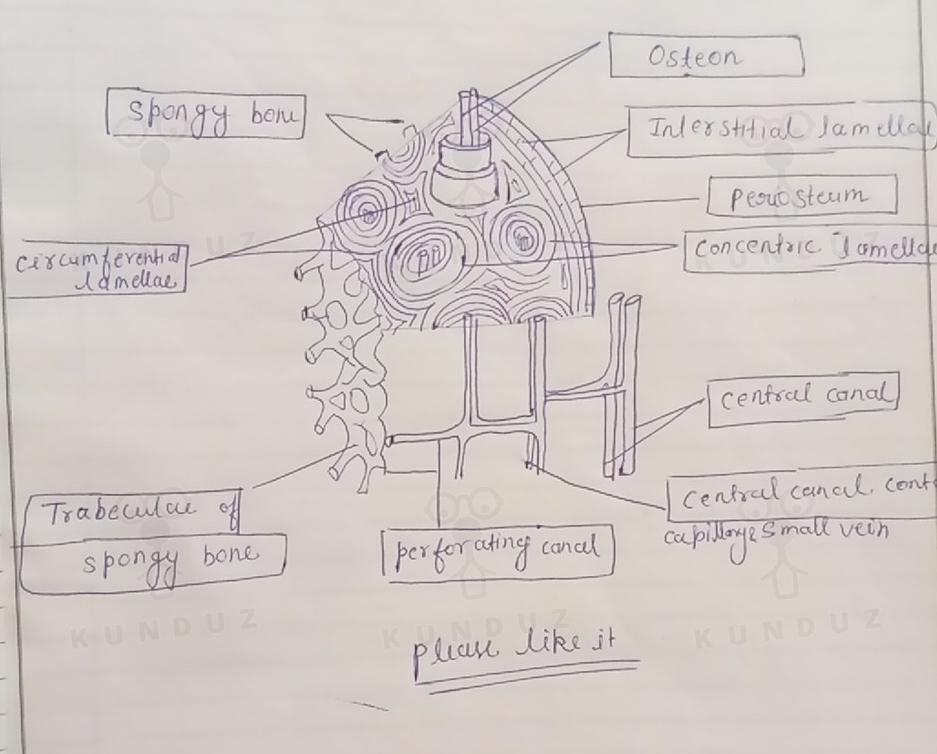 Osteon
Spongy bone
Interstitial lamellae
periosteum
concentric lamellae
circumferential
lamellae
central canal
Trabeculae of
spongy bone
central canal. cont
capillary & small vein
perforating canal
KUNDUZ
KUNDUZ
KUNDUZ
please like it